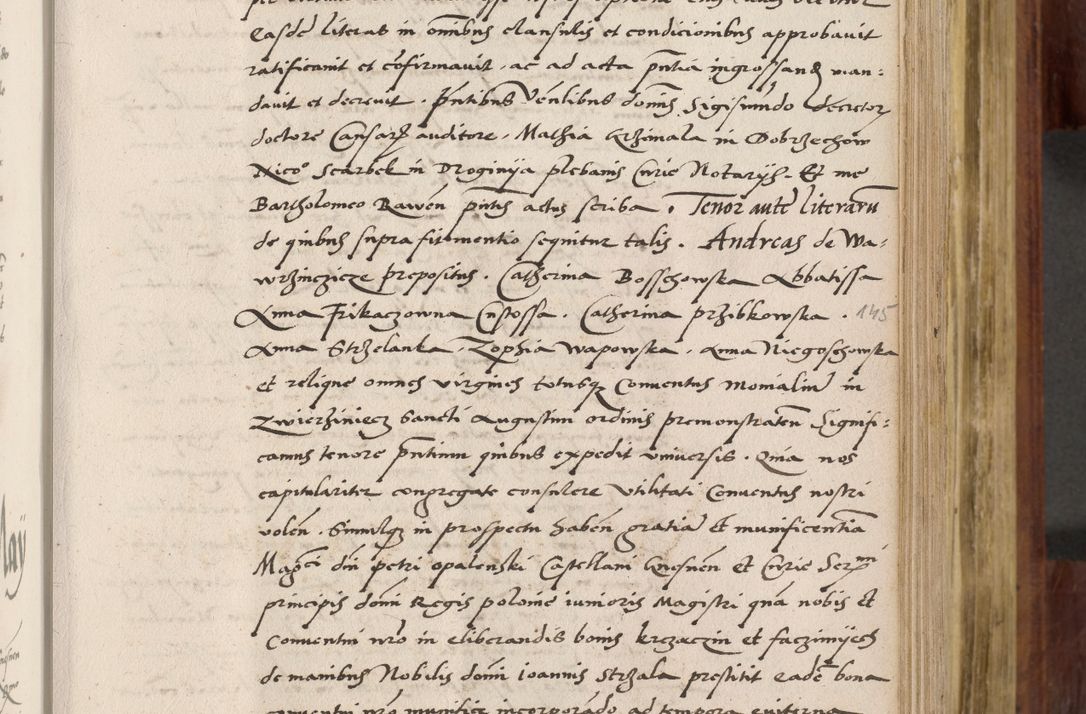 Easdē literas in om̄ibus clausulis et condicionibus approbauit
ratificauit et cōfirmauit, ac ad acta pn̄tia ingrossand man:
dauit et decreuit. Pn̄tibus Ven̄libus dominis Sigismūdo decretor
doctore Cansar auditore, Mathia Grzimala in Dobrzechow
Nico° Scarbek in Droginija plebanis Curie Notarijs. Et me
Bartholomeo Rawen̄ pn̄tis actus scriba. Tenor autē literarū
de quibus supra fit mentio sequitur talis. Andreas de Wa:
wrzinczicze prepositus. Catherina Bosschowska Abbatissa
Anna Frikaczowna Custossa. Catherina przibkowska. 145
Anna Strzelanka, Zophia Wapowska, Anna Niegoschowska
et relique omnes virgines totusq Conuentus monialiū in
Zwierziniecz Sancti Augustini ordinis premonstraten̄ Signifi:
camus tenore pn̄tium quibus expedit vniuersis. Quia nos
capitulariter congregate consulere vtilitati Conuentus nostri
volen̄. Simulq in prospectu haben̄ gratiā et munificentiā
Mag^ci dn̄i petri opalenski Castellani Gnesnen̄ et Curie Ser^mi
principis domi Regis polonie iunioris Magistri qua nobis et
Conuentui nr̄o in eliberandis bonis krzaczin et faczimijech
de manibus Nobilis domi ioannis Strzala prestitit eadē bona
conuentui nr̄o munifice incorporādo ad tempora euiterna